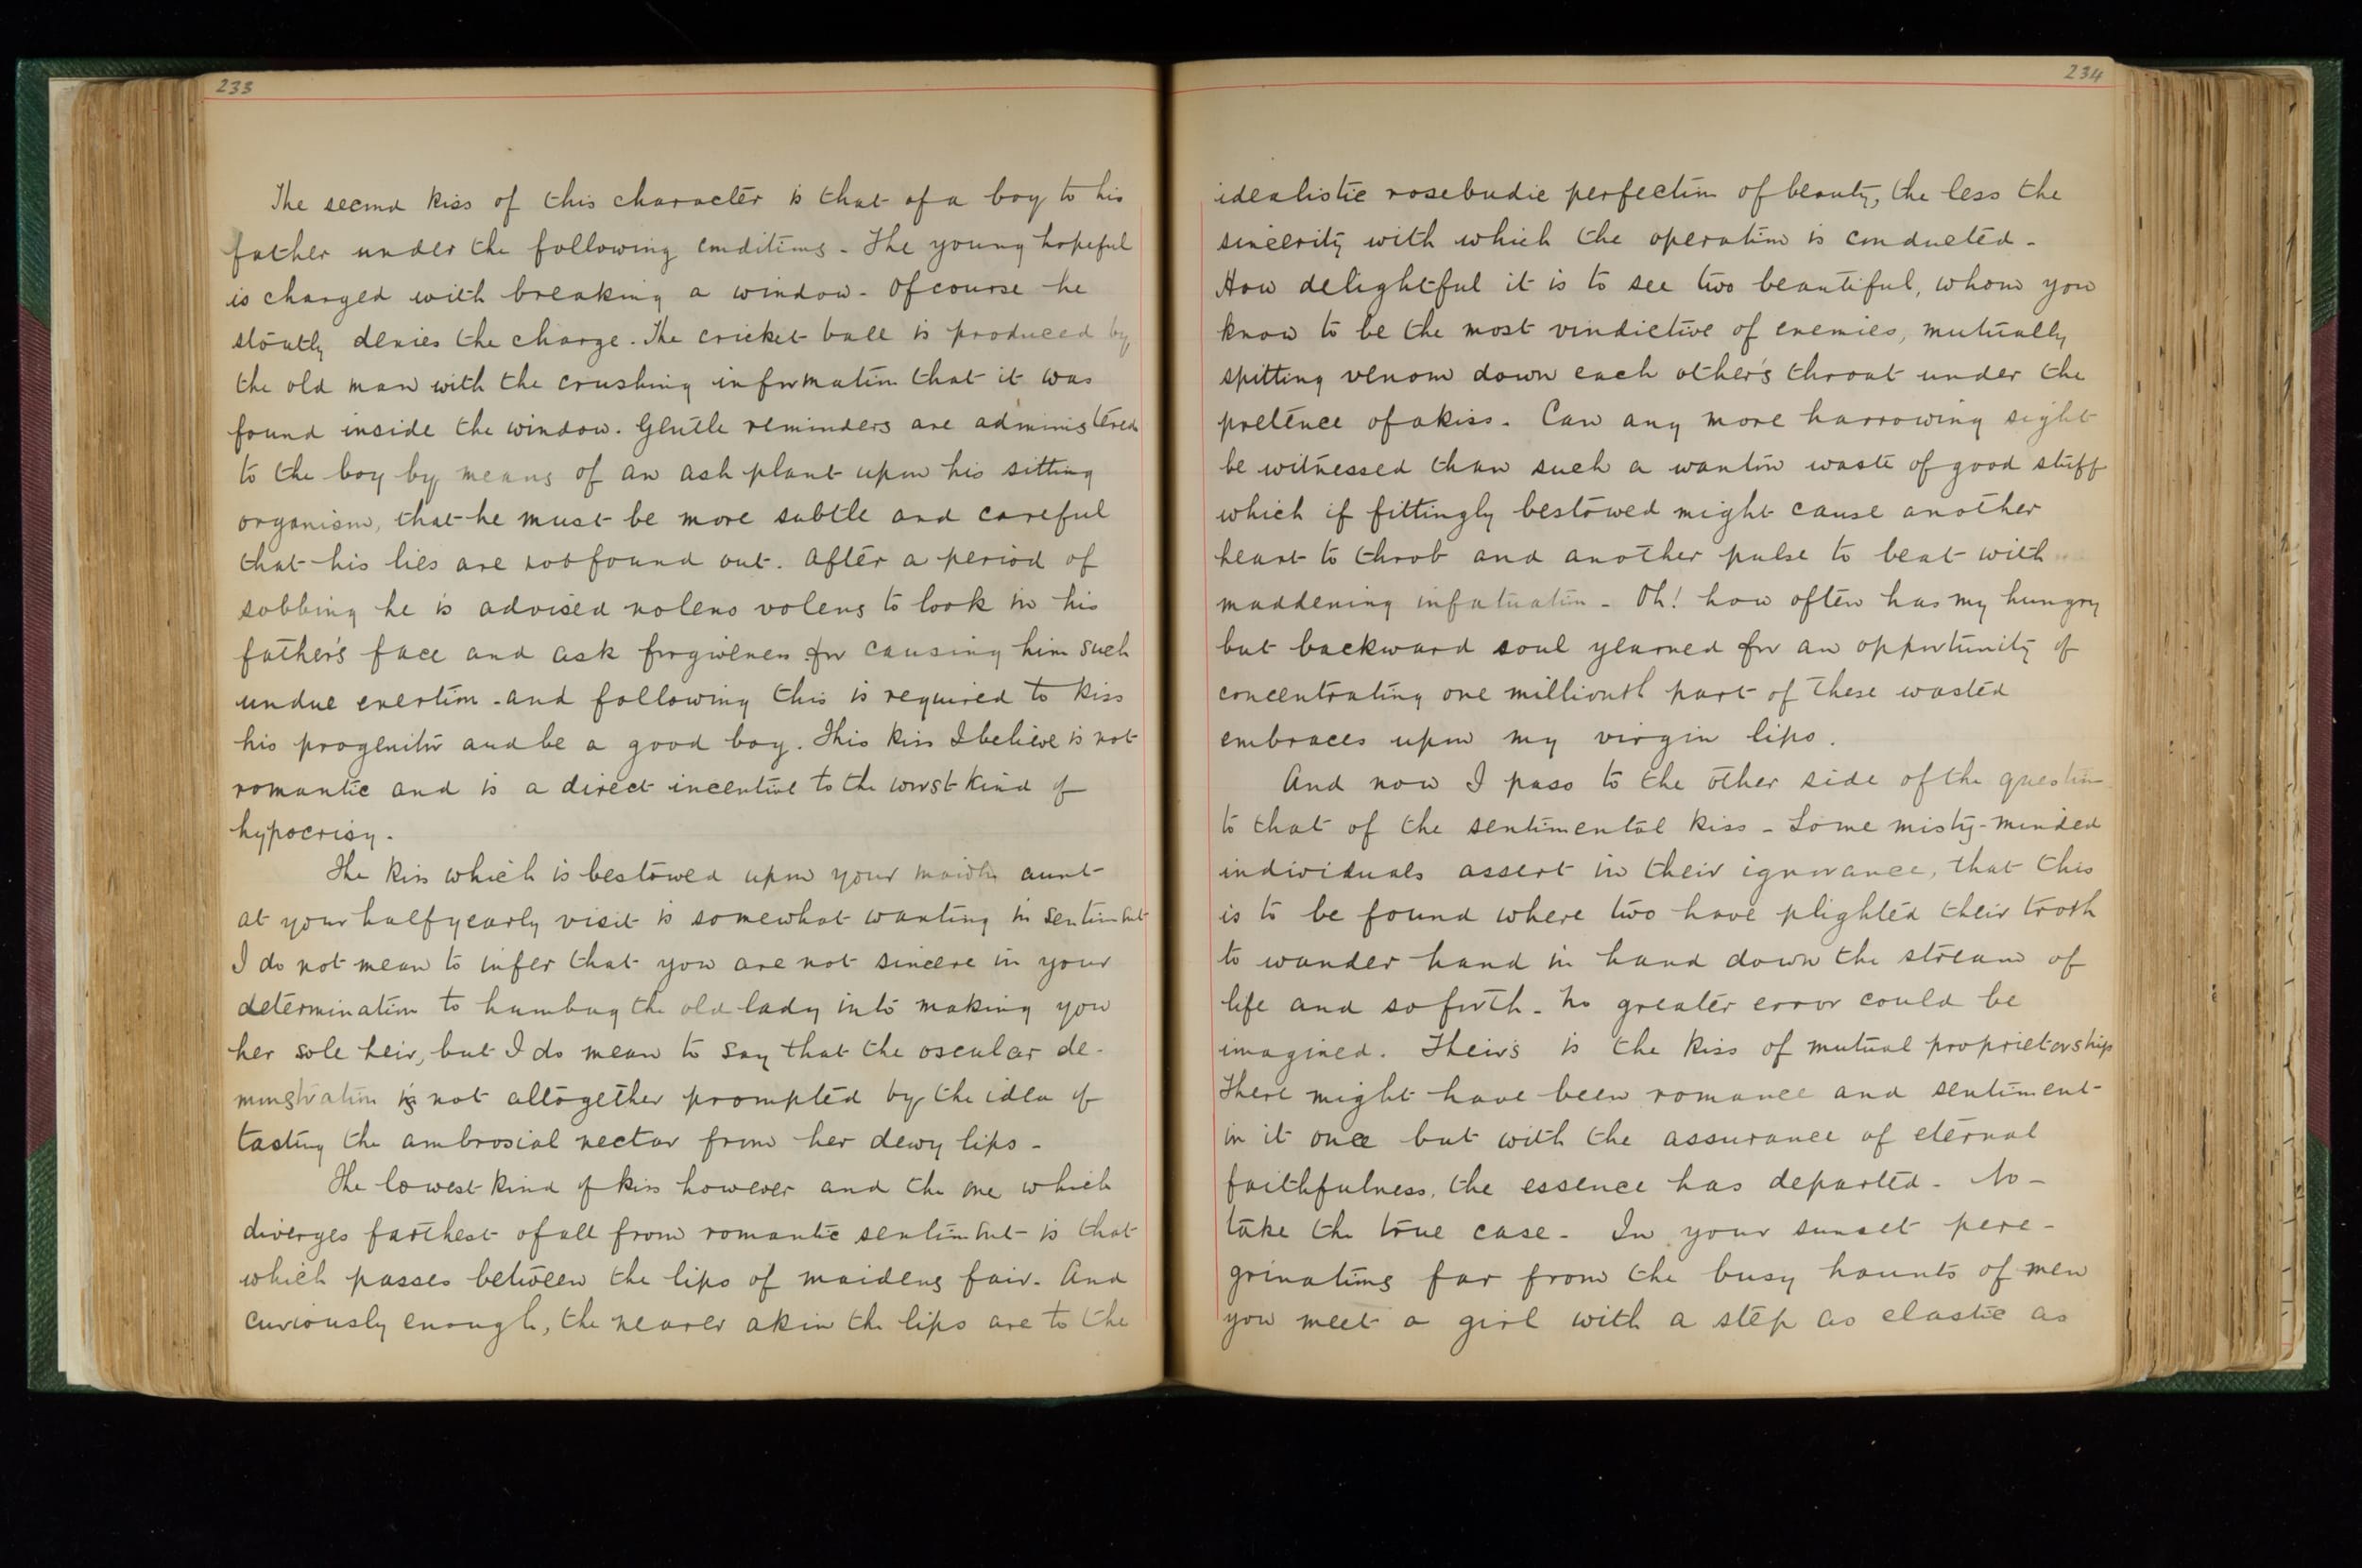 233
The second kiss of this character is that of a boy to his
father under the following conditions - The young hopeful
is charged with breaking a window - Of course he
stoutly denies the charge. The cricket ball is produced by
the old man with the crushing information that it was
found inside the window. Gentle reminders are administered
to the boy by means of an ash plant upon his sitting
organism, that he must be more subtle and careful
that his lies are not found out. After a period of
sobbing he is advised nolens volens to look in his
father's face and ask forgiveness for causing him such
undue exertion - and following this is required to kiss
his progenitor and be a good boy. This kiss I believe is not
romantic and is a direct incentive to the worst kind of
hypocrisy -
The kiss which is bestowed upon your maiden aunt
at your half yearly visit is somewhat wanting in sentiment
I do not mean to infer that you are not sincere in your
determination to humbug the old lady into making you
her sole heir, but I do mean to say that the oscular de-
monstration is not altogether prompted by the idea of
tasting the ambrosial nectar from her dewy lips -
The lowest kind of kiss however and the one which
diverges farthest of all from romantic sentiment - is that
which passes between the lips of maidens fair - And
curiously enough, the nearer akin the lips are to the
234
idealistic rosebudic perfection of beauty, the less the
sincerity with which the operation is conducted -
How delightful it is to see two beautiful, whom you
know to be the most vindictive of enemies, mutually
spitting venom down each other's throat under the
pretence of a kiss. Can any more harrowing sight
be witnessed than such a wanton waste of good stuff
which if fittingly bestowed might cause another
heart to throb and another pulse to beat with
maddening infatuation - Oh! how often has my hungry
but backward soul yearned for an opportunity of
concentrating one millionth part of these wasted
embraces upon my virgin lips.
And now I pass to the other side of the question
to that of the sentimental kiss - Some misty-minded
individuals assert in their ignorance, that this
is to be found where two have plighted their troth
to wander hand in hand down the stream of
life and so forth - No greater error could be
imagined. Their's is the kiss of mutual proprietorship
There might have been romance and sentiment -
in it once but with the assurance of eternal
faithfulness, the essence has departed - No -
take the true case - In your sunset pere-
grinations far from the busy haunts of men
you meet a girl with a step as elastic as